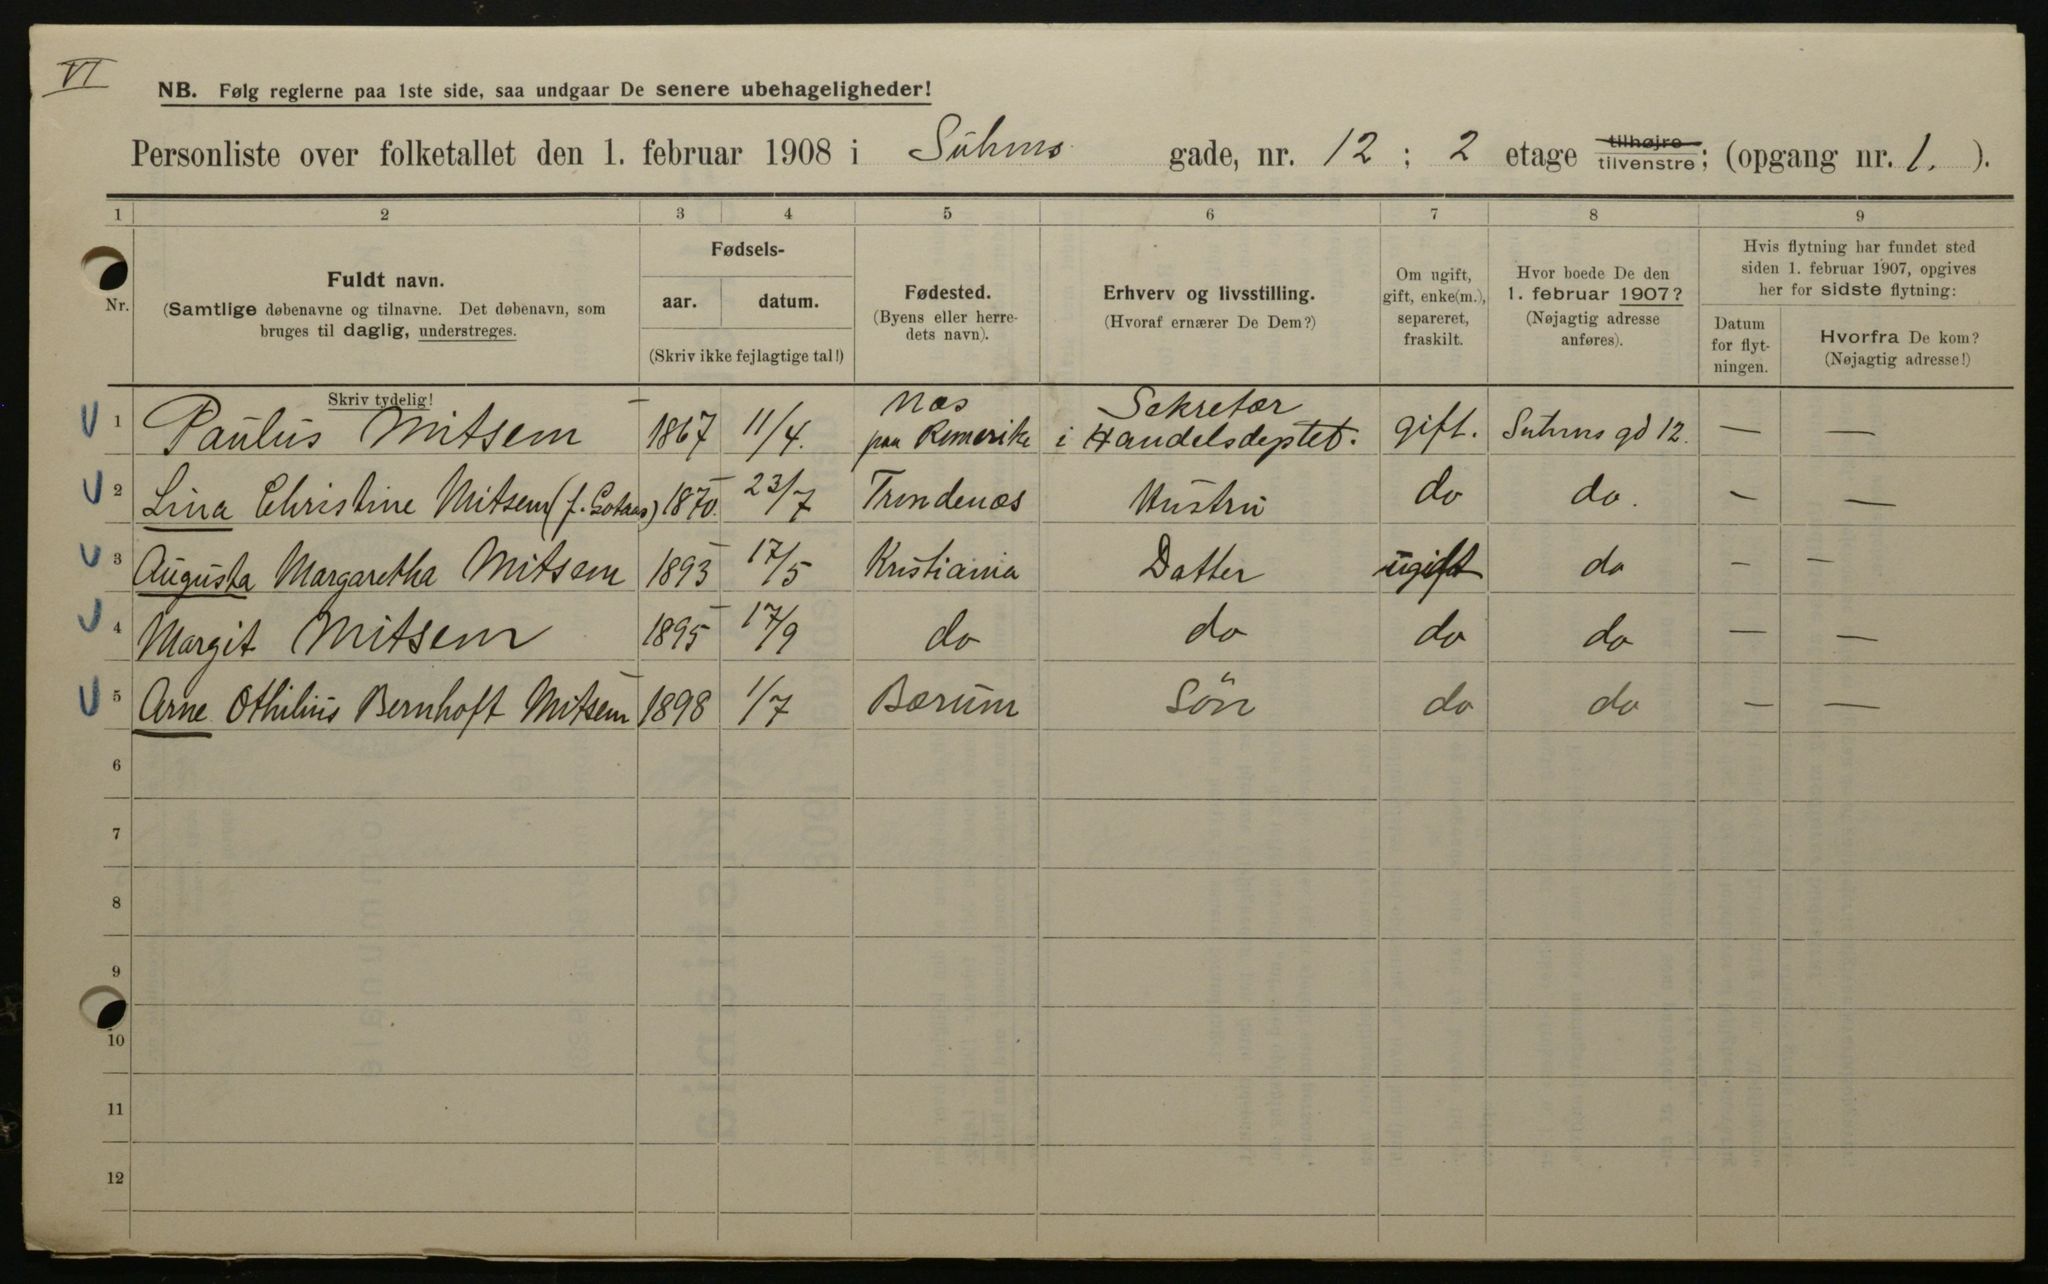 VI
NB. Følg reglerne paa 1ste side, saa undgaar De senere ubehageligheder!
Personliste over folketallet den 1. februar 1908 i Suhms gade, nr. 12 ; 2 etage tilhøjre tilvenstre; (opgang nr. 1. ).
1 2 3 4 5 6 7 8 9
Nr.
Fuldt navn.
(Samtlige døbenavne og tilnavne. Det døbenavn, som
bruges til daglig, understreges.
Skriv tydelig!
Fødsels-
aar. datum.
(Skriv ikke fejlagtige tal!)
Fødested.
(Byens eller herre-
dets navn).
Erhverv og livsstilling.
(Hvoraf ernærer De Dem?)
Om ugift,
gift, enke(m.),
separeret,
fraskilt.
Hvor boede De den
1. februar 1907?
(Nøjagtig adresse
anføres).
Hvis flytning har fundet sted
siden 1. februar 1907, opgives
her for sidste flytning:
Datum
for flyt-
ningen.
Hvorfra De kom?
(Nøjagtig adresse!)
1 Paulus Mitsem 1867 11/4. Næs paa Romerike Sekretær i Handelsdeptet. gift. Suhms gd 12. — —
2 Lina Christine Mitsem (f. Gotaas) 1870. 23/7 Trondenæs Hustru do do. — —
3 Augusta Margaretha Mitsem 1893 17/5 Kristiania Datter ugift do — —
4 Margit Mitsem 1895 17/9 do do do do — —
5 Arne Othilius Bernhoft Mitsem 1898 1/7 Bærum Sön do do — —
6
7
8
9
10
11
12